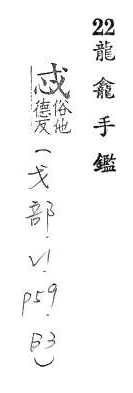 22 龍龕手鑑
俗他
德反
(戈部.V1.p59.B3)